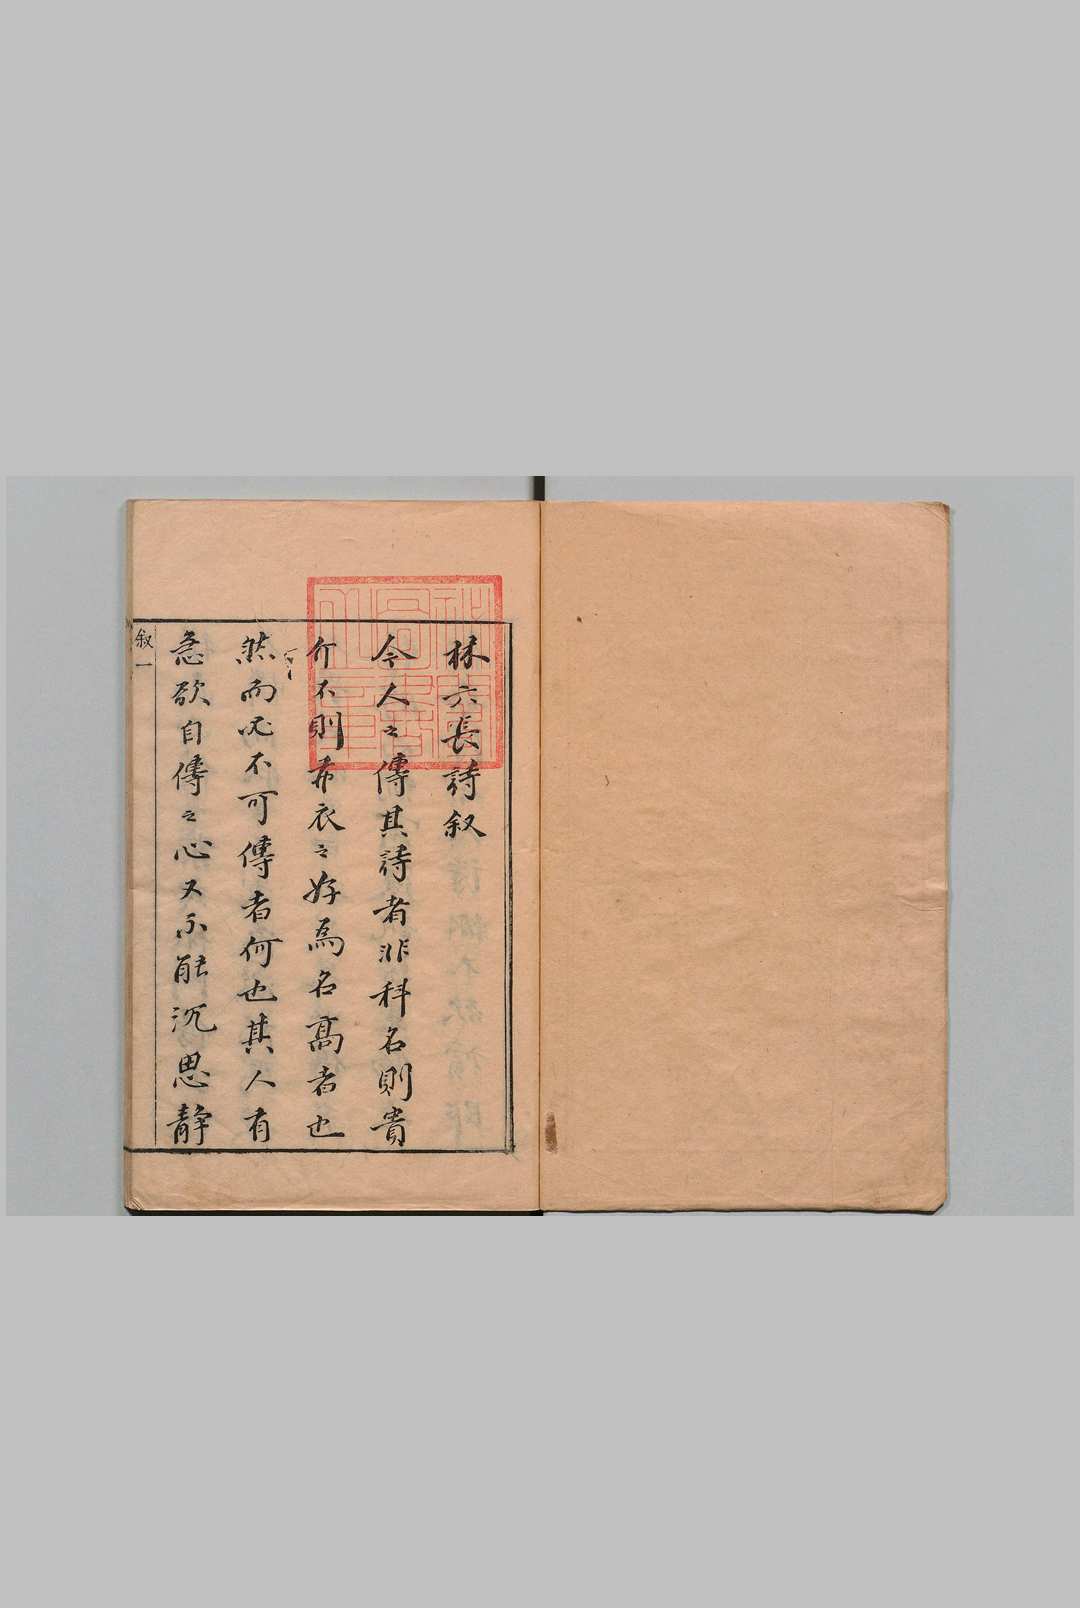 林六長詩叙
今人之傳其詩者非科名則貴
介不則布衣之好爲名高者也
然而必不可傳者何也其人有
急欲自傳之心又不能沉思靜
叙一